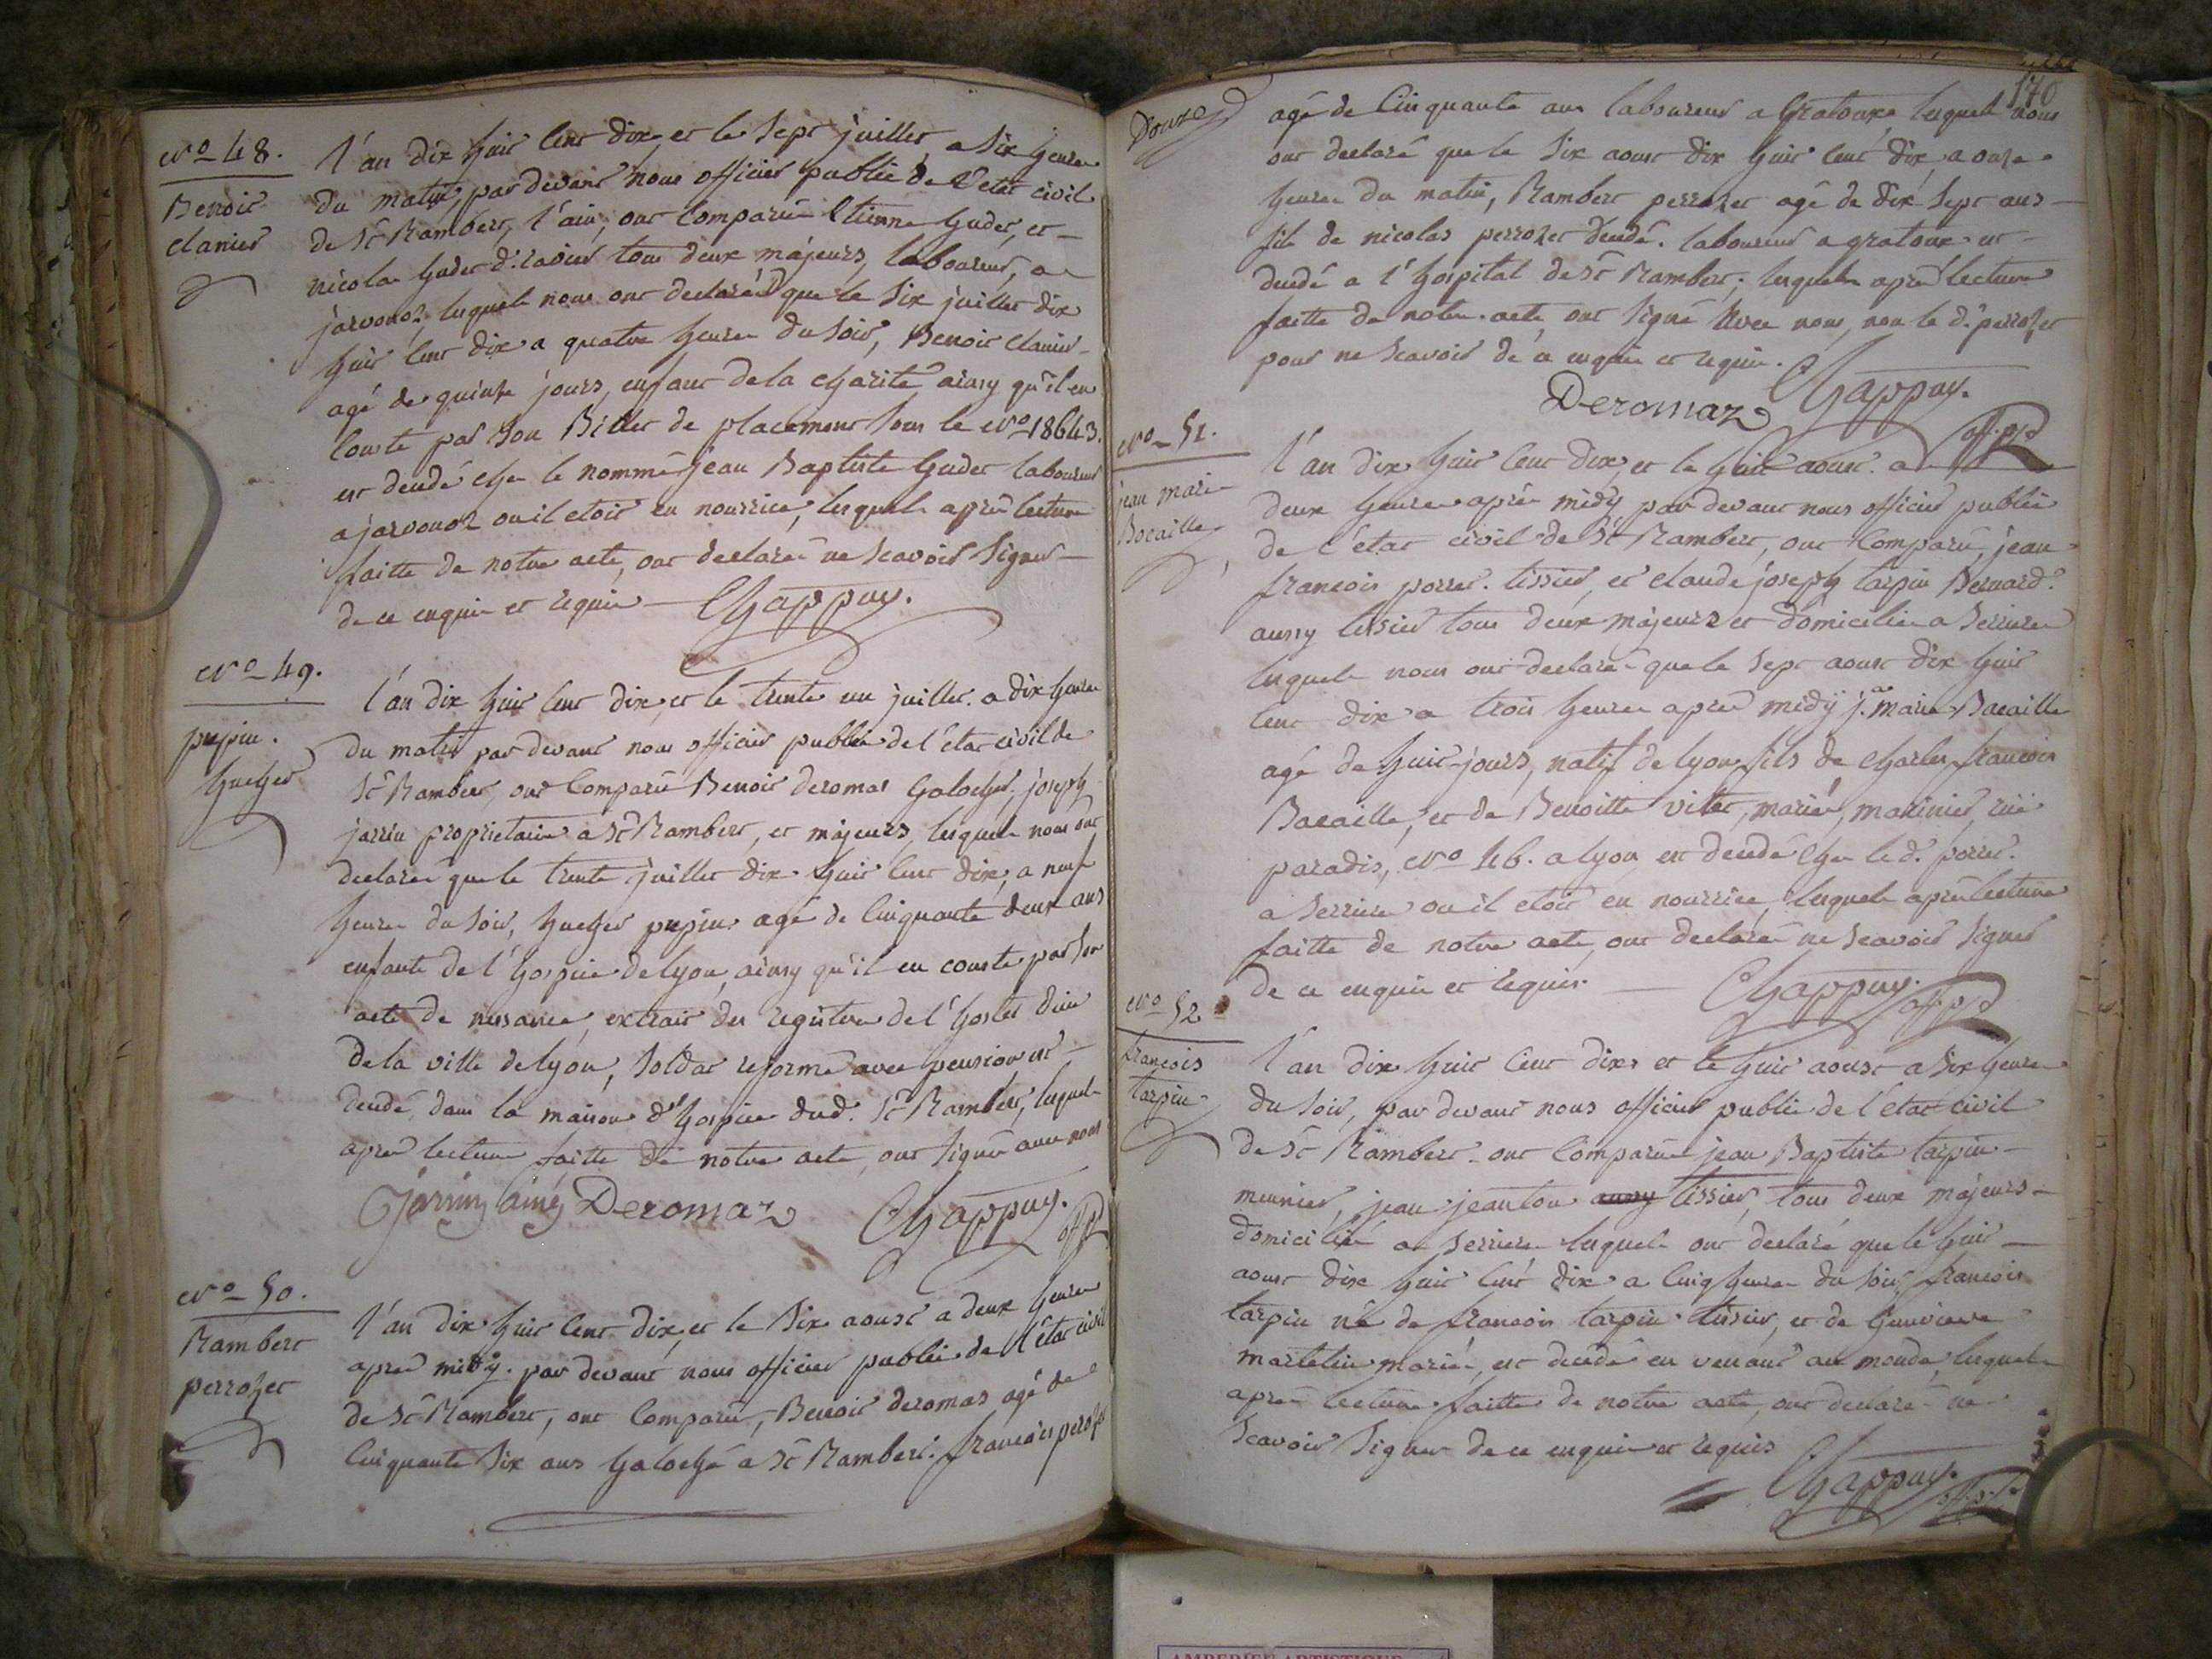 No 48.
Benoit
clanier
l'an dix huit cent dix, et le sept juillet a six heures
du matin, par devant nous officier public de l'état civil
de St Rambert, l'ain, ont comparu Etienne huder, et
nicolas huder d. ravier tous deux majeurs, laboureurs, a
javornoz, lesquels nous ont declarés que le six juillet dix
huit cent dix a quatre heures du soir, Benoit clanier
agé de quinze jours, enfant de la charité ainsy qu'il en
conste par son Billet de placement sous le No 18643.
est decedé chez le nommé jean Baptiste huder laboureur
a javornoz ou il etoit en nourrice, lesquels après lecture
faitte de notre acte, ont declarés ne scavoir signer
de ce enquis et requis Chappuy.
No 49.
pupin.
hueher
l'an dix huit cent dix, et le trente un juillet. a dix heures
du matin par devant nous officier public de l'état civil de
St Rambert, ont comparu Benoit deromas Galocher, joseph
jarrin proprietaire a St Rambert, et majeurs, lesquels nous ont
declarés que le trente juillet dix huit cent dix, a neuf
heures du soir, hueher pupin agé de cinquante deux ans
enfants de l'hospice de lyon, ainsy qu'il en conste par son
acte de nessance, extrait des registres de l'hostel dieu
de la ville de lyon, soldat reformé avec pension est
decedé, dans la maison d'hospice dud. St Rambert, lesquels
après lecture faitte de notre acte, ont signés avec nous
Jarrin ainé Deromaz Chappuy.
off. p.
No 50.
Rambert
perrozet
l'an dix huit cent dix, et le six aoust a deux heures
après midy. par devant nous officier public de l'état civil
de St Rambert, ont comparu, Benoit deromas agé de
cinquante six ans galoché a St Rambert. francois perozet
170
Douze
agé de cinquante ans laboureur a Gratoux lesquels nous
ont declaré que le six aoust dix huit cent dix, a onze
heures du matin, Rambert perrozet agé de dix sept ans
fils de nicolas perrozet decedé. laboureur a gratoux est
decedé a l'hospital de St Rambert; lesquels après lecture
faitte de notre acte, ont signé avec nous, non le d. perrozet
pour ne scavoir de ce enquis et requis.
Deromaz Chappuy.
off. p.
No 51.
jean marie
Bocaille
l'an dix huit cent dix, et le huit aoust. a
deux heures après midy par devant nous officier public
de l'état civil de St Rambert, ont comparu, jean
francois porret. tissier, et claude joseph tarpin Bernard.
aussy tissier tous deux majeurs et domiciliés a serrieres
lesquels nous ont declaré que le sept aoust dix huit
cent dix a trois heures après midy j. marie Bacaille
agé de huit jours, natif de lyon fils de charles francois
Bacaille, et de Benoitte vitet, mariés, marinier, rue
paradis, No 46. a lyon est decedé chez le d. porret.
a serrieres ou il etoit en nourrice, lesquels après lecture
faitte de notre acte, ont declarés ne scavoir signer
de ce enquis et requis. Chappuy.
off. p.
No 52
francois
tarpin
l'an dix huit cent dix, et le huit aoust a six heures
du soir, par devant nous officier public de l'état civil
de St Rambert ont comparu jean Baptiste tarpin
meunier, jean jeanton aussy tissier, tous deux majeurs
domiciliés a serrieres lesquels ont declaré que le huit
aoust dix huit cent dix a cinq heures du soir, francois
tarpin né de francois tarpin tissier, et de Genevieve
martelin mariés, est decedé en venant au monde, lesquels
après lecture faitte de notre acte, ont declaré ne
scavoir signer de ce enquis et requis
Chappuy.
off. p.